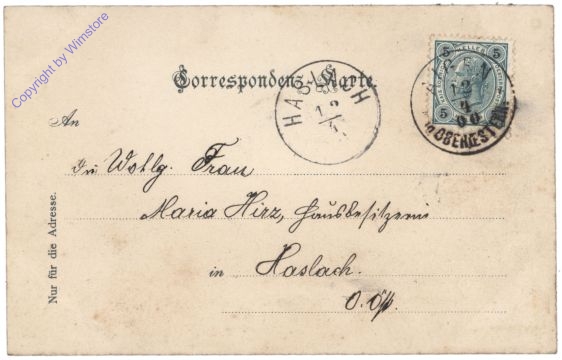 Copyright by Wimstore
Correspondenz-Karte.
5 HELLER 5
5 5
HASLACH
12/4
12
4
00
OBEROESTERR.
An
Die Wohlg. Frau
Maria Hirz, Hausbesitzerin
in Haslach.
O. Öst.
Nur für die Adresse.